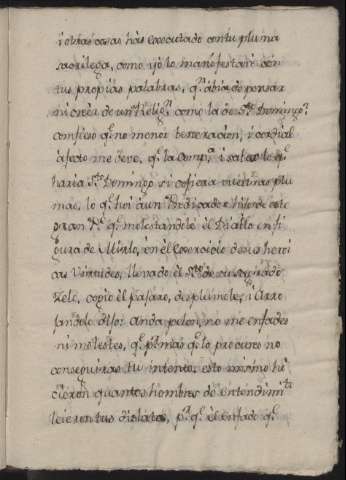 i otras cosas hàs executado con tu pluma
sacrilega, como yo te manifestarè con
tus propias palabras, q.e abia de pensar
ni creèr de un Relig.o como la de S.to Domingo?
confieso q.e no menor beneracion, i cordial
afecto me deve, q.e la Comp.a i sabes lo q.e
haria S.to Domingo si cojiera vuestras plu
mas, lo q.e hoi à un Predicador hijo de este
gran P.e q.e molestandole èl Diablo en fi
gura de Mirlo, èn el exercicio de sus heroi
cas Virtudes, llevado èl S.to de su sagrado
Zelo, cogiò èl pajaro, desplumole, i arro
jandole dijo: anda pelon, no me enfades
ni molestes, q.e p.r mas q.e lo procures no
conseguiras tu intento, esto mismo hi
cieron quantos hombres de entendim.to
leieron tus dislates, p.r q.e èl enfado q.e